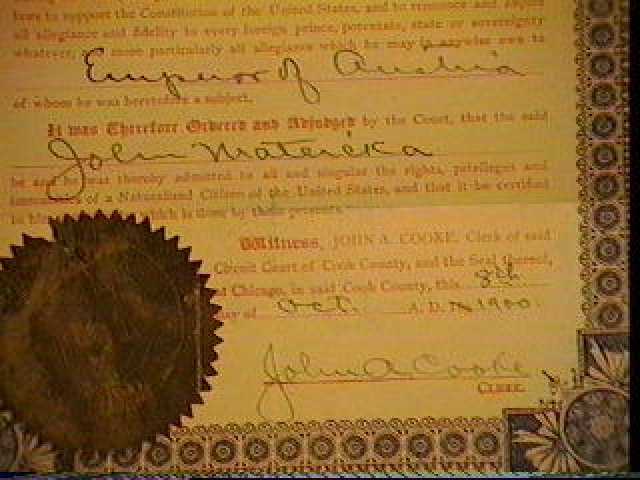 to support the Constitution of the United States, and to renounce and
all allegiance and fidelity to every foreign prince, potentate, state or sovereignty
whatever, and more particularly all allegiance which he may in anywise owe to
Emperor of Austria
of whom he was heretofore a subject.
It was Therefore Ordered and Adjudged by the Court, that the said
John Matericka
be and he was thereby admitted to all and singular the rights, privileges and
of a Naturalized Citizen of the United States, and that it be certified
which is done by these presents.
Witness, JOHN A. COOKE, Clerk of said
Circuit Court of Cook County, and the Seal thereof,
Chicago, in said Cook County, this 8th
of Oct. A. D. 1900.
John A. Cooke
Clerk.